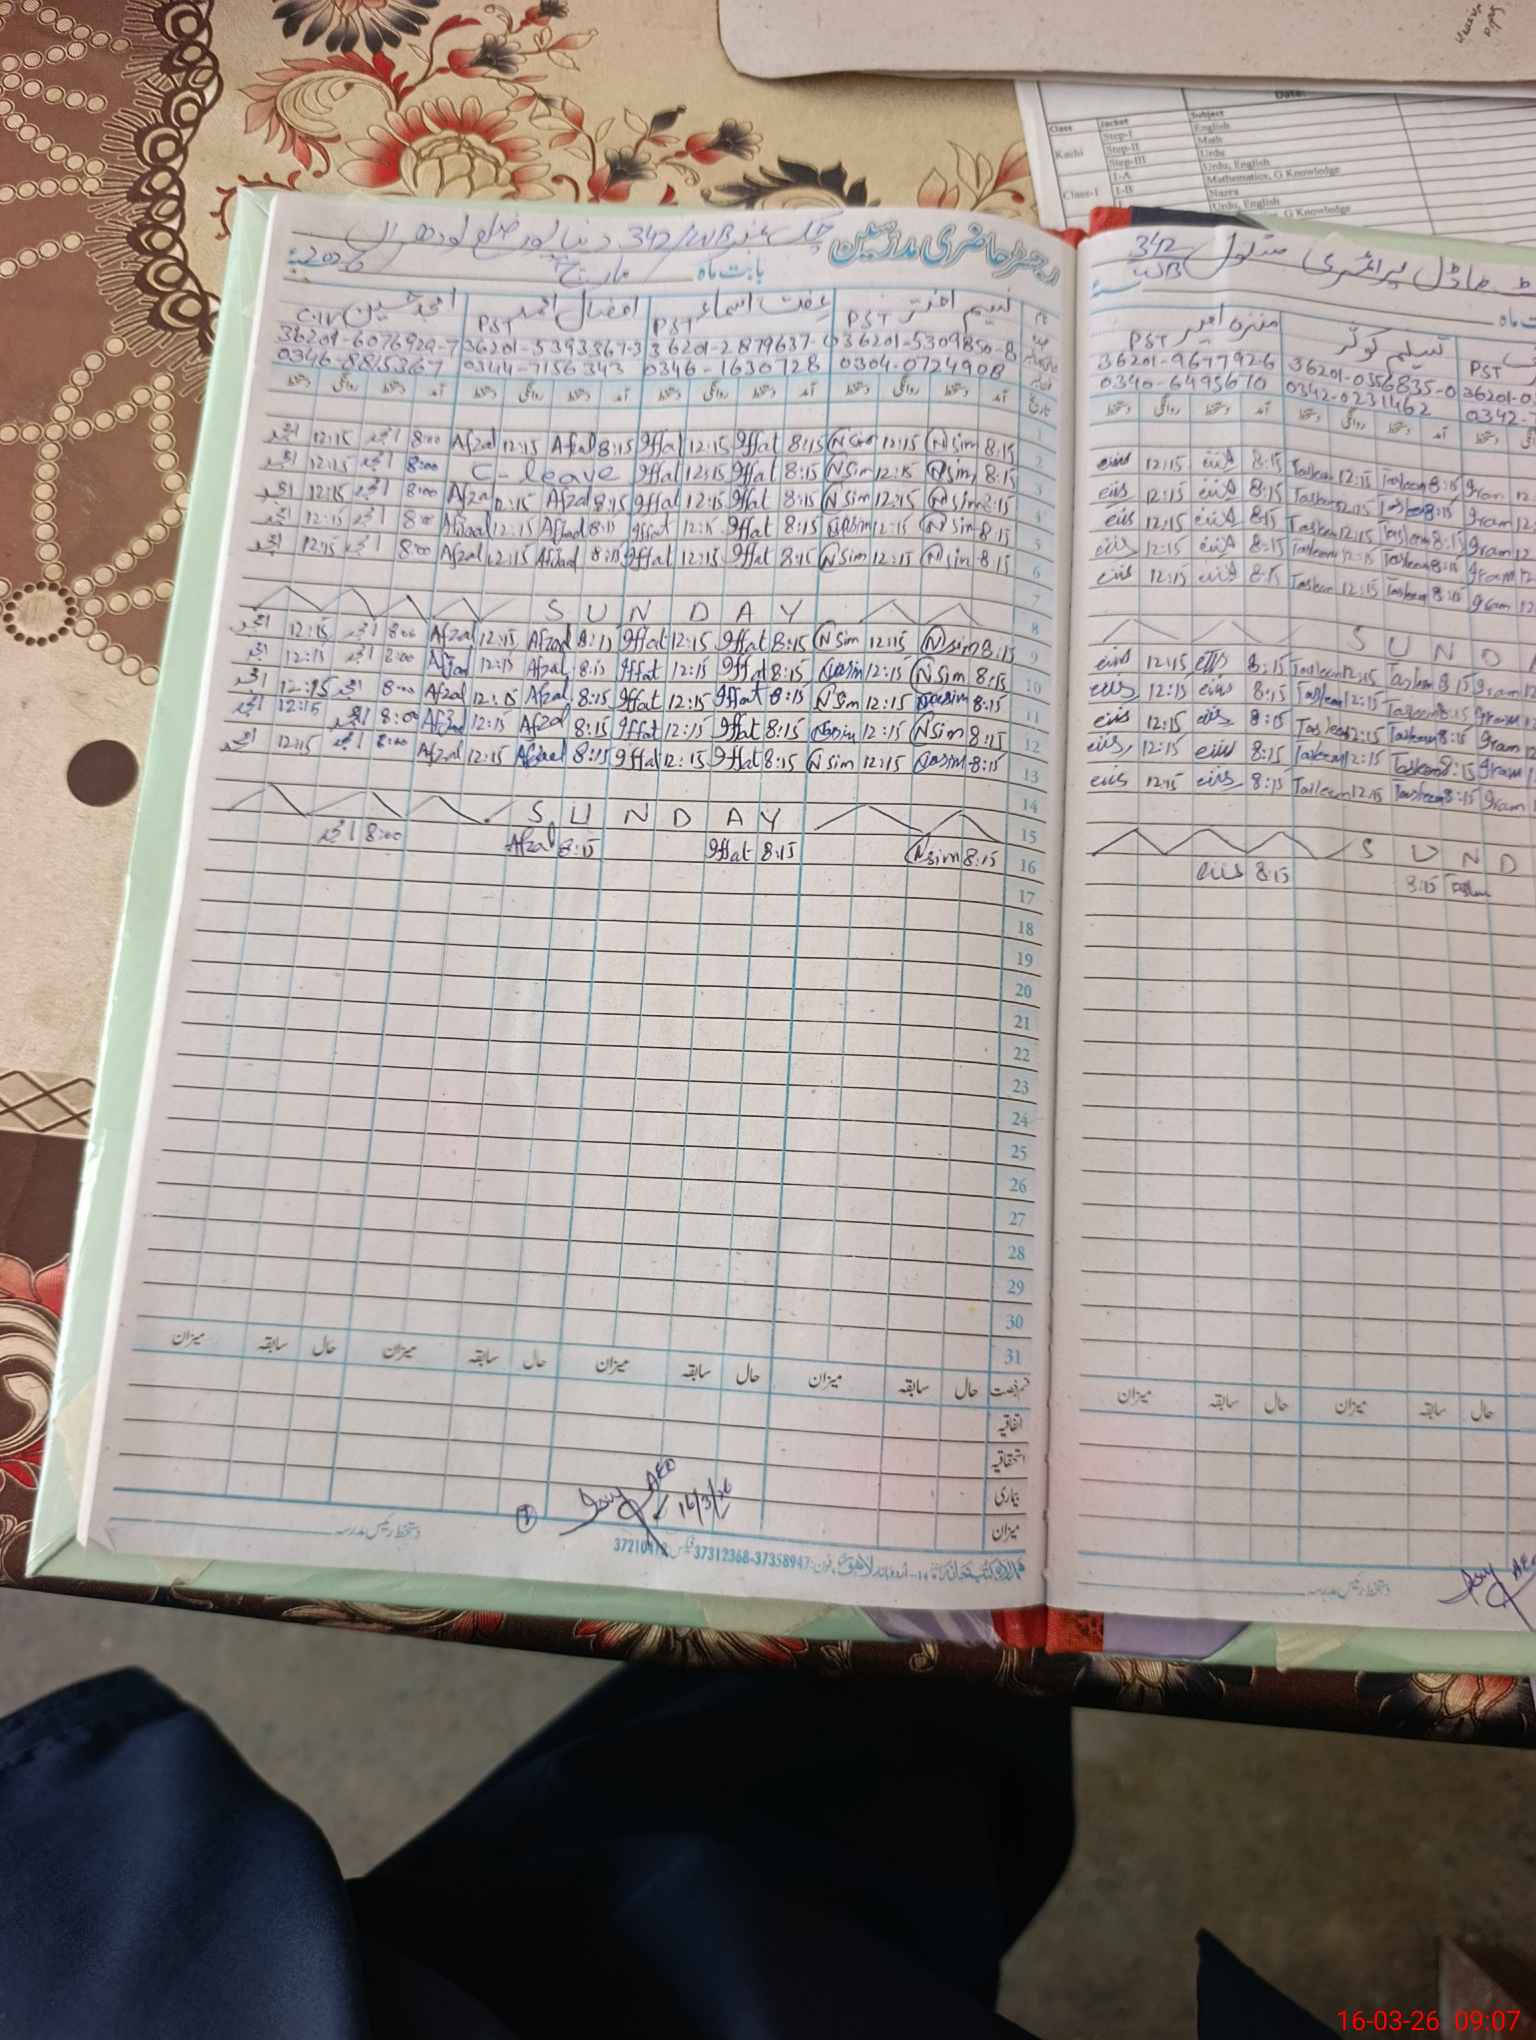 Date:
Class Jacket Subject
Step-I English
Kachi Step-II Math
Step-III Urdu
I-A Urdu, English
Class-1 I-B Mathematics, G Knowledge
Nazra
Urdu, English
G Knowledge
رجسٹر حاضری مدرسین چک نمبر 342/WB دنیا پور ضلع لودھراں
بابت ماہ مارچ 2026ء
نام نسیم اختر عفت اسماء افضال احمد امجد حسین
عہدہ PST PST PST
36201-5309850-8 36201-2879637-6 36201-5393367-3 36201-6076929-7
0304-0724908 0346-1630728 0344-7156343 0346-8815367
تاریخ آمد دستخط روانگی دستخط آمد دستخط روانگی دستخط آمد دستخط روانگی دستخط آمد دستخط روانگی دستخط
1
2 امجد 12:15 امجد 8:00 Afzal 12:15 Afzal 8:15 Iffat 12:15 Iffat 8:15 Nsim 12:15 Nsim 8:15
3 امجد 12:15 امجد 8:00 C-leave Iffat 12:15 Iffat 8:15 Nsim 12:15 Nsim 8:15
4 امجد 12:15 امجد 8:00 Afzal 12:15 Afzal 8:15 Iffat 12:15 Iffat 8:15 Nsim 12:15 Nsim 8:15
5 امجد 12:15 امجد 8:00 Afzaal 12:15 Afzal 8:15 Iffat 12:15 Iffat 8:15 Nasim 12:15 Nsim 8:15
6 امجد 12:15 امجد 8:00 Afzal 12:15 Afzaal 8:15 Iffat 12:15 Iffat 8:15 Nsim 12:15 Nsim 8:15
7
8 SUNDAY
9 امجد 12:15 امجد 8:00 Afzal 12:15 Afzaal 8:15 Iffat 12:15 Iffat 8:15 Nsim 12:15 Nsim 8:15
10 امجد 12:15 امجد 8:00 Afzaal 12:15 Afzal 8:15 Iffat 12:15 Iffat 8:15 Nasim 12:15 Nsim 8:15
11 امجد 12:15 امجد 8:00 Afzal 12:15 Afzal 8:15 Iffat 12:15 Iffat 8:15 Nsim 12:15 Nasim 8:15
12 امجد 12:15 امجد 8:00 Afzaal 12:15 Afzal 8:15 Iffat 12:15 Iffat 8:15 Nasim 12:15 Nsim 8:15
13 امجد 12:15 امجد 8:00 Afzal 12:15 Afzaal 8:15 Iffat 12:15 Iffat 8:15 Nsim 12:15 Nasim 8:15
14
15 SUNDAY
16 امجد 8:00 Afzal 8:15 Iffat 8:15 Nsim 8:15
17
18
19
20
21
22
23
24
25
26
27
28
29
30
31
قسم رخصت حال سابقہ میزان حال سابقہ میزان حال سابقہ میزان حال سابقہ میزان
اتفاقیہ
استحقاقیہ
بیماری
میزان
AEO
16/3/26
دستخط رئیس مدرسہ
فون: 37312368-37358947 فیکس
ماڈل پرائمری سکول 342/WB
تسلیم کوثر منزہ امیر
PST PST
36201-0356835-0 36201-9677926
0342-0231462 0340-6495670 0342-
آمد دستخط روانگی دستخط آمد دستخط روانگی دستخط
12:15 8:15 Tasleem 12:15 Tasleem 8:15 Iram 12
12:15 8:15 Tasleem 12:15 Tasleem 8:15 Iram 12
12:15 8:15 Tasleem 12:15 Tasleem 8:15 Iram 12
12:15 8:15 Tasleem 12:15 Tasleem 8:15 Iram 12
12:15 8:15 Tasleem 12:15 Tasleem 8:15 Iram 12
SUND
12:15 8:15 Tasleem 12:15 Tasleem 8:15 Iram 12
12:15 8:15 Tasleem 12:15 Tasleem 8:15 Iram
12:15 8:15 Tasleem 12:15 Tasleem 8:15 Iram 12
12:15 8:15 Tasleem 12:15 Tasleem 8:15 Iram
12:15 8:15 Tasleem 12:15 Tasleem 8:15 Iram
SUND
8:15 8:15
حال سابقہ میزان حال سابقہ میزان
AEO
دستخط رئیس مدرسہ
16-03-26 09:07